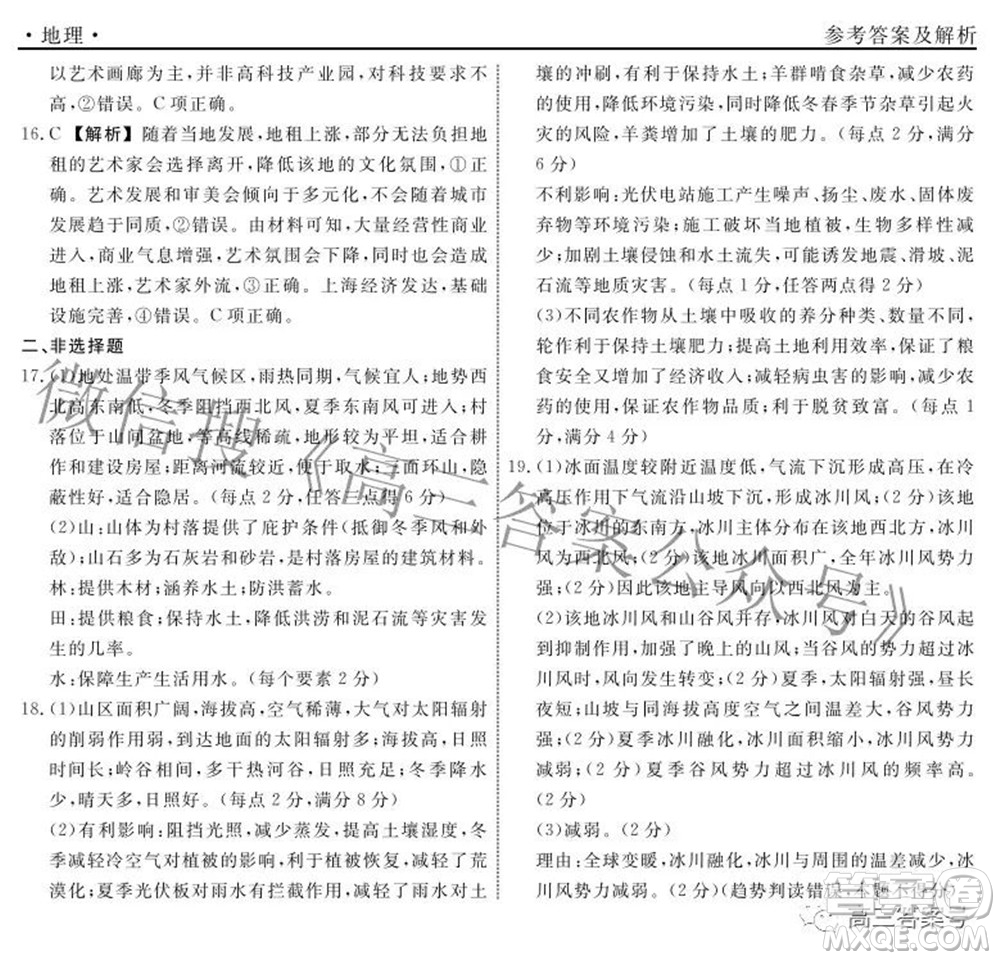 ·地理·
参考答案及解析
以艺术画廊为主，并非高科技产业园，对科技要求不
高，②错误。C项正确。
16.C 【解析】随着当地发展，地租上涨，部分无法负担地
租的艺术家会选择离开，降低该地的文化氛围，①正
确。艺术发展和审美会倾向于多元化，不会随着城市
发展趋于同质，②错误。由材料可知，大量经营性商业
进入，商业气息增强，艺术氛围会下降，同时会提高土
地租金，艺术家外流，③正确。上海经济发达，基础
设施完善，④错误。C项正确。
二、非选择题
17.(1)地处温带季风气候区，雨热同期，气候宜人；地势西
北高东南低，冬季阻挡西北风，夏季东南风可进入；村
落位于山间盆地，等高线稀疏，地形较为平坦，适合耕
作和建设房屋；距离河流较近，便于取水；三面环山，隐
蔽性好，适合隐居。(每点2分，任答三点得6分)
(2)山：山体为村落提供了庇护条件(抵御冬季风和外
敌)；山石多为石灰岩和砂岩，是村落房屋的建筑材料。
林：提供木材；涵养水土；防洪蓄水。
田：提供粮食；保持水土，降低洪涝和泥石流等灾害发
生的几率。
水：保障生产生活用水。(每个要素2分)
18.(1)山区面积广阔，海拔高，空气稀薄，大气对太阳辐射
的削弱作用弱，到达地面的太阳辐射多；海拔高，日照
长；岭谷相间，多干热河谷，日照充足；冬季降水
少，晴天多，日照多。(每点2分，满分8分)
(2)有利影响：阻挡光照，减少蒸发，提高土壤湿度，冬
季减轻冷空气对植被的影响，利于植被恢复，减轻了荒
漠化；夏季光伏板对雨水有拦截作用，减轻雨水对土
壤的冲刷，有利于保持水土；羊群啃食杂草，减少农药
的使用，降低环境污染，同时降低冬春季节杂草引起火
灾的风险，羊粪增加了土壤的肥力。(每点2分，满分
6分)
不利影响：光伏电站施工产生噪声、扬尘、废水、固体废
弃物等环境污染；施工破坏当地植被，生物多样性减
少；加剧土壤侵蚀和水土流失；可能诱发地震、滑坡、泥
石流等地质灾害。(每点1分，任答两点得2分)
(3)不同农作物从土壤中吸收的养分种类、数量不同，
轮作有利于保持土壤肥力；提高土地利用效率，保证了粮
食安全又增加了经济收入；减轻病虫害的影响，减少农药
的使用，保证农作物品质；利于脱贫致富。(每点1
分，满分4分)
19.(1)冰面温度较附近温度低，气流下沉形成高压，在冷
高压作用下气流沿山坡下沉，形成冰川风；(2分)该地
位于冰川的东南方，冰川主体分布在该地西北方，冰川
风为西北风；(2分)该地冰川面积广，全年冰川风势力
强；(2分)因此该地主导风向以西北风为主。
(2)该地冰川风与山谷风并存，冰川风对白天的谷风
起到了削弱作用，加强了晚上的山风；当谷风的势力强
时，风向发生转变；(2分)夏季，太阳辐射强，谷风势力
增强；山坡与同海拔高度空气之间温差大，谷风势力
强；(2分)夏季冰川融化，冰川面积缩小，冰川风势力减
弱；(2分)夏季谷风势力大于冰川风的频率高。
(2分)
(3)减弱。(2分)
理由：全球变暖，冰川融化，冰川与周围的温差减少，冰
川风势力减弱。(2分)(趋势判读错误，本题不得分)
微信搜《高三答案公众号》
高三答案号
答案圈
MXQE.COM